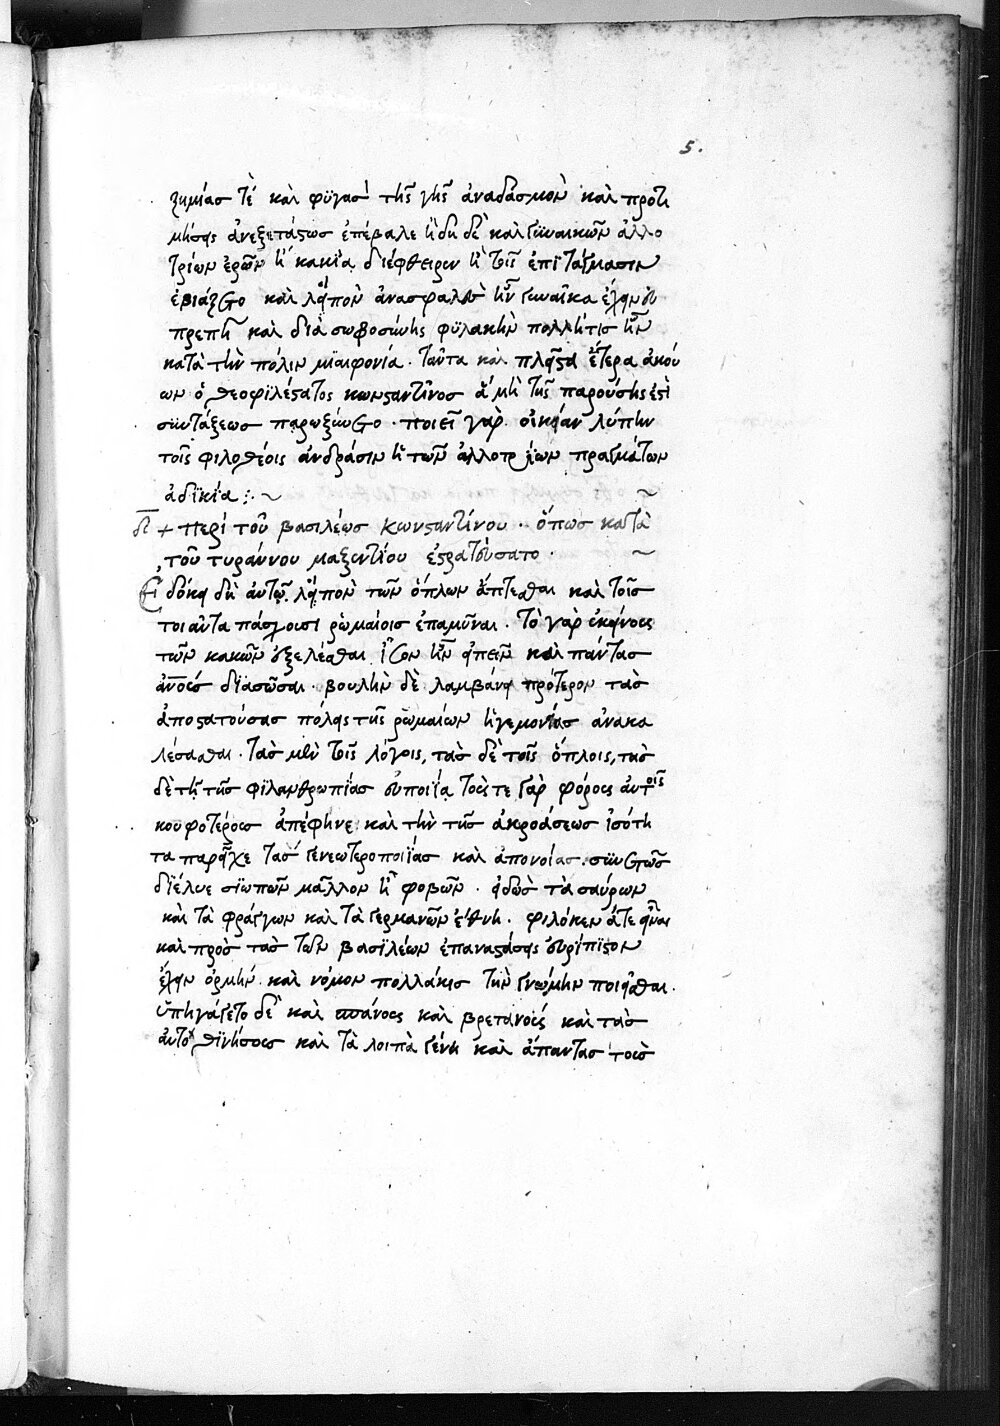 5.
ζημίας τὲ καὶ φϋγασὶ τῆς γῆς ἀναδασμὸν καὶ προτι
μήσεις ἀνεξετάστως ἐπέβαλε ἤδη δὲ καὶ γϋναικῶν ἀλλο
τρίων ἐρῶν ἡ κακία διέφθειρεν ἢ τοῖς ἐπιτάγμασιν
ἐβιάζετο καὶ λοιπὸν ἀνασφαλὲς ἦν γυναῖκα ἔχειν εὐ
πρεπῆ καὶ διὰ σωφροσύνης φϋλακὴν πολλή τις ἦν
κατὰ τὴν πόλιν μϊαιφονία. ταῦτα καὶ πλεῖστα ἕτερα ἀκού
ων ὁ θεοφϊλέστατος κωνσταντῖνος ἃ μὴ τῆς παρούσης ἐστὶ
σϋντάξεως παρωξύνετο. ποιεῖ γὰρ οἰκείαν λύπην
τοῖς φιλοθέοις ἀνδράσιν ἡ τῶν ἀλλοτρίων πραγμάτων
ἀδϊκία :~ ~
δι + περὶ τοῦ βασιλέως κωνσταντίνου. ὅπως κατὰ
τοῦ τυράννου μαξεντίου ἐστρατεύσατο. ~
Ἐδόκει δὴ αὐτῷ λοιπὸν τῶν ὅπλων ἅπτεσθαι καὶ τοῖς
τοιαῦτα πάσχουσι ῥωμαίοις ἐπαμῦναι. τὸ γὰρ ἐκείνους
τῶν κακῶν ἐξελέσθαι ἴσον ἦν εἰπεῖν καὶ πάντας
ἀνους διασῶσαι. βουλὴν δὲ λαμβάνει πρότερον τὰς
ἀποστατούσας πόλεις τῆς ῥωμαίων ἡγεμονίας ἀνακα
λέσασθαι. τὰς μὲν τοῖς λόγοις, τὰς δὲ τοῖς ὅπλοις, τὰς
δὲ τῇ τῆς φϊλανθρωπίας εὐποιΐᾳ τούς τε γὰρ φόρους αὐτοῖς
κουφοτέρους ἀπέφηνε καὶ τὴν τῆς ἀκροάσεως ἰσότη
τα παρεῖχε τὰς γενεωτεροποιΐας καὶ ἀπονοίας. σϋνετῶς
διέλυε σϊωπῶν μᾶλλον ἢ φοβῶν. εἰδὼς τὰ σαύρων
καὶ τὰ φράγγων καὶ τὰ γερμανῶν ἔθνη. φιλόκεν ἅτε εἶναι
καὶ πρὸς τὰς τῶν βασϊλέων ἐπαναστάσεις εὐρίπϊστον
ἔχειν ὁρμήν. καὶ νόμον πολλάκις τὴν γνώμην ποιεῖσθαι.
ὑπηγάγετο δὲ καὶ ϊσπάνους καὶ βρετανοὺς καὶ τὰς
αὐτόχθϊνήσους καὶ τὰ λοιπὰ γένη καὶ ἅπαντας τοὺς